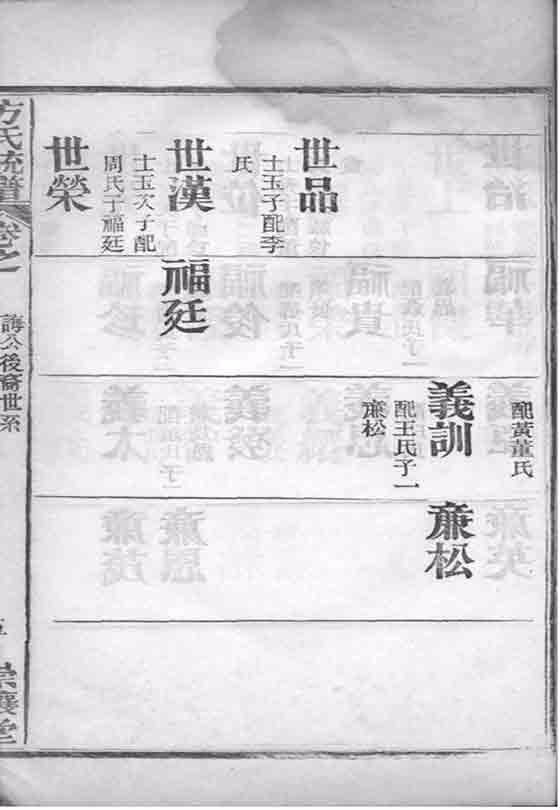 世品
士玉子配李
氏
世漢
士玉次子配
周氏子福廷
世榮
福廷
配黃董氏
義訓
配王氏子一
亷松
亷松
方氏統譜
卷之
公後裔世系